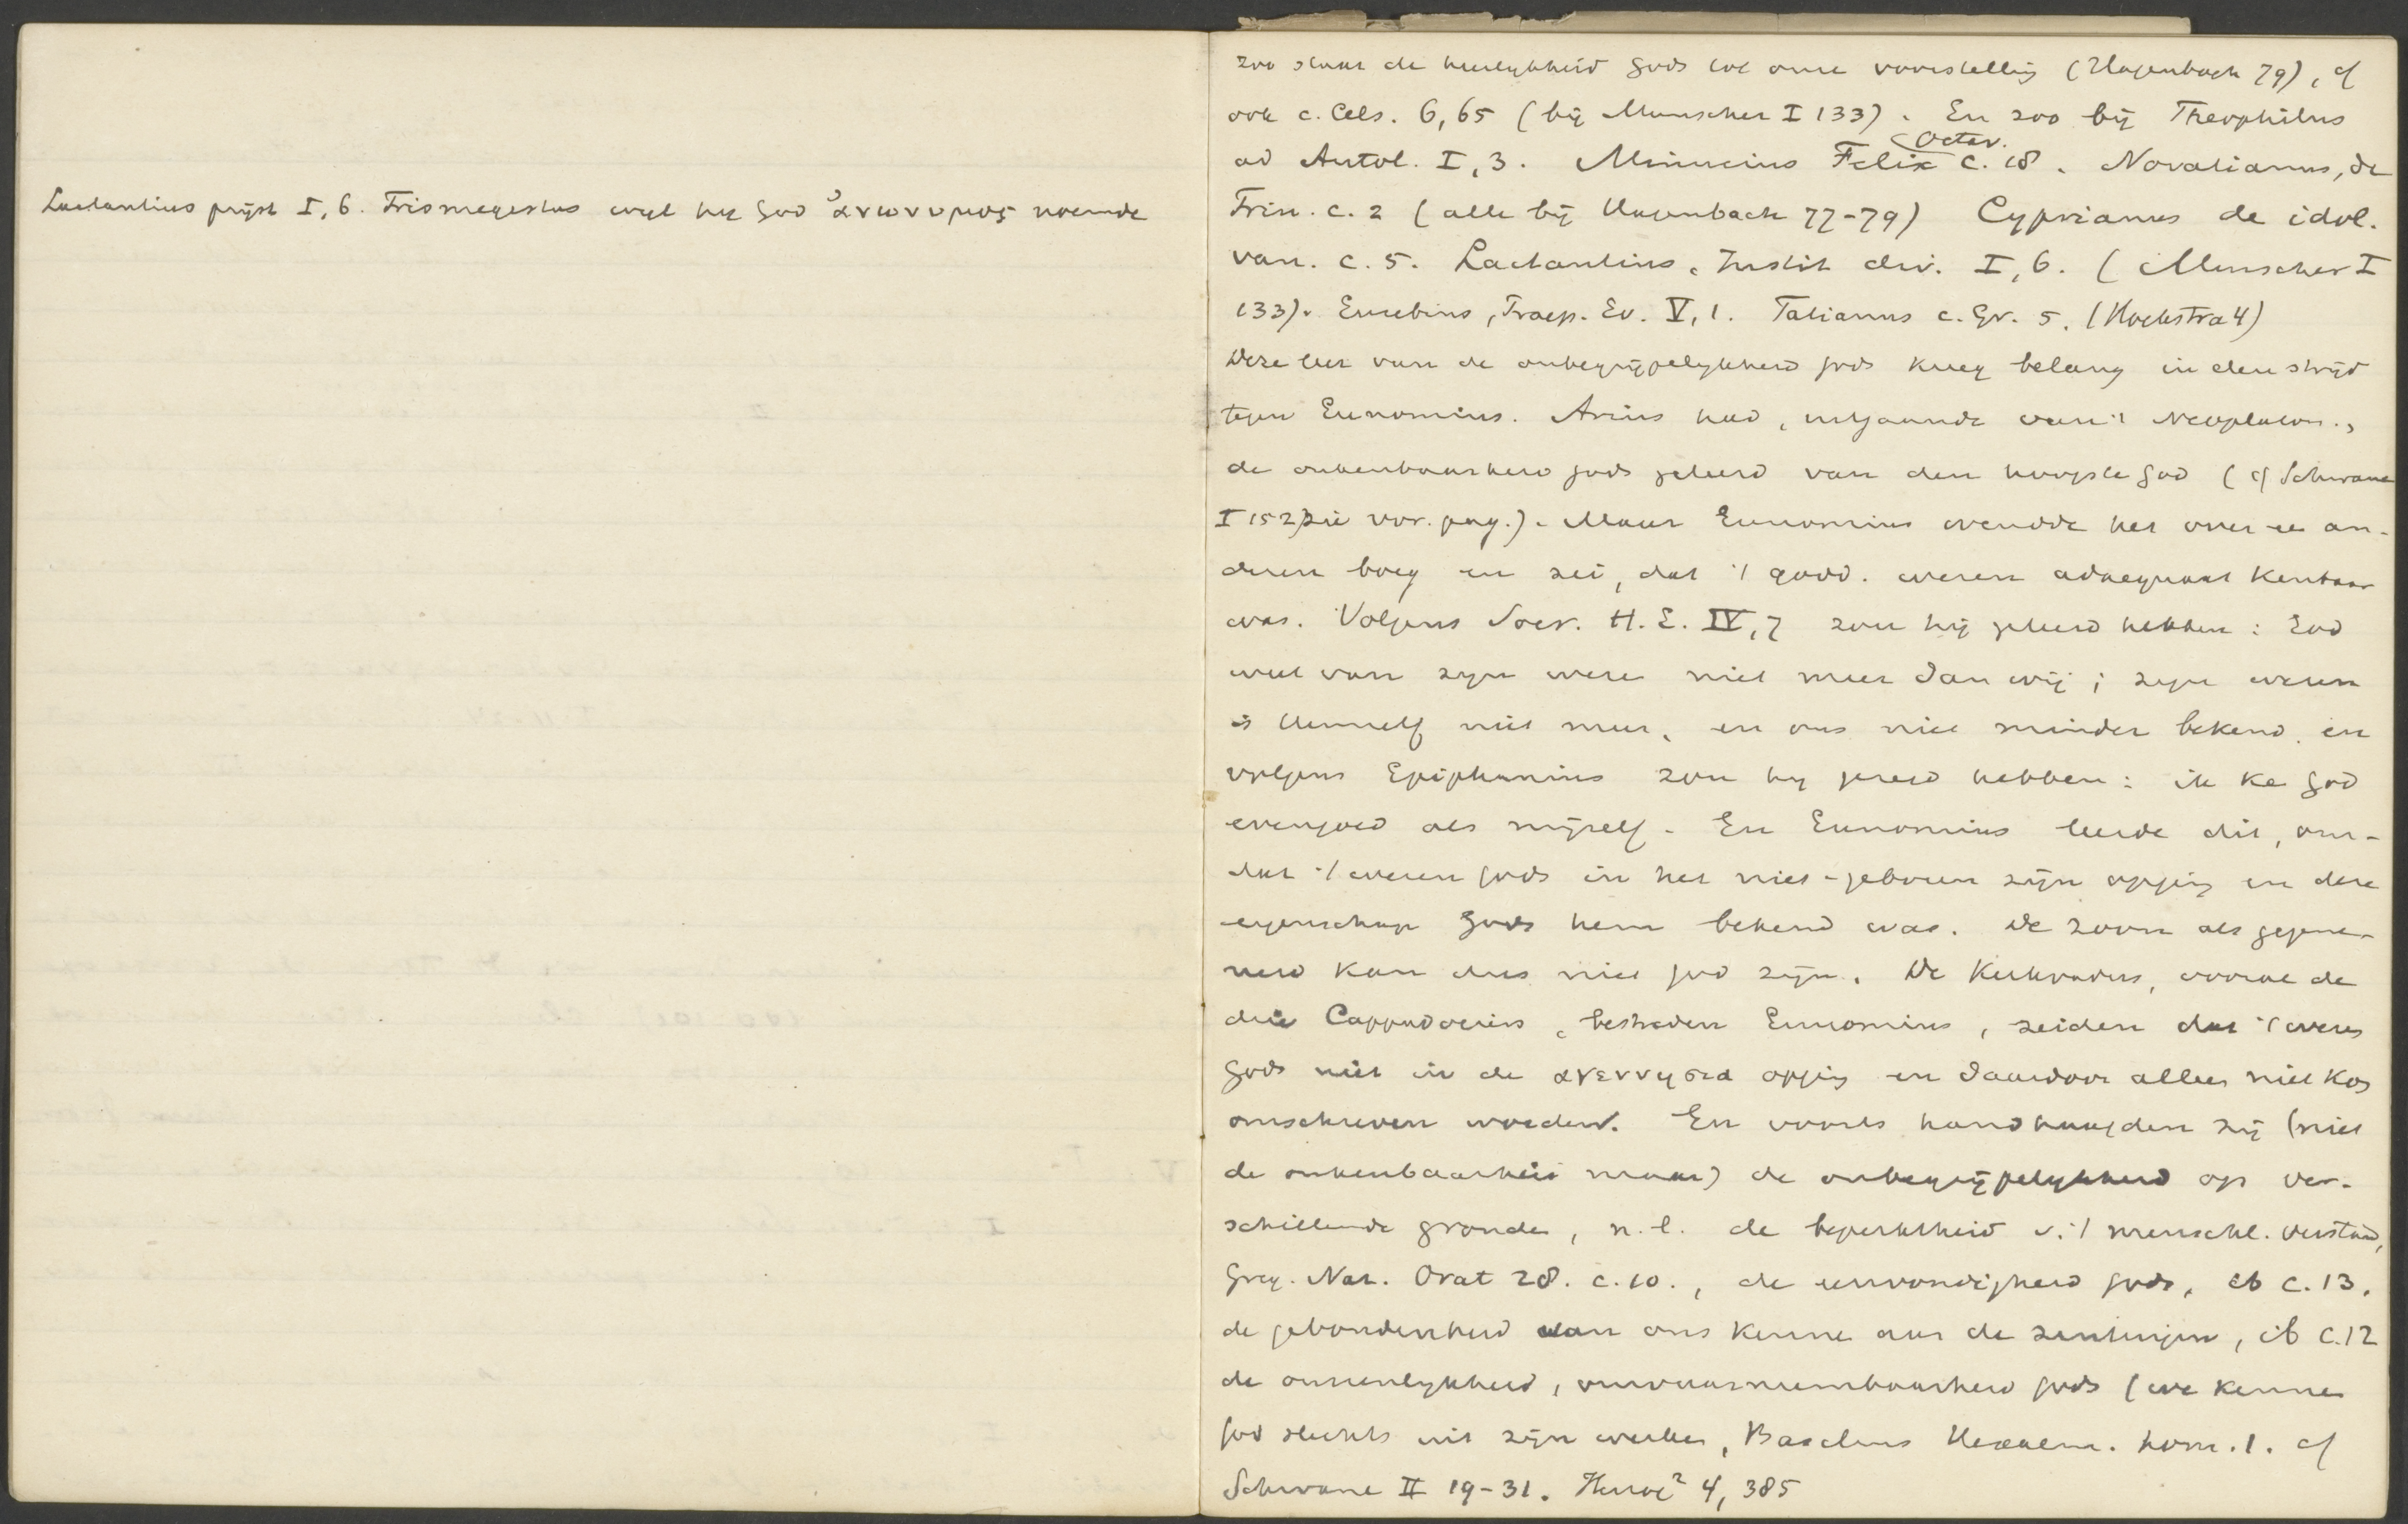 Lactantius prijst I, 6. Trismegistus wijl hij God ἀνωνυμος noemde
zoo staat de heerlijkheid Gods tot onze voorstelling (Hagenbach 79), cf
ook c. Cels. 6,65 (bij Munscher I 133). En zoo bij Theophilus
ad Autol. I, 3. Minucius Felix Octav. c. 18. Novatianus, de
Trin. c. 2 (alle bij Hagenbach 77-79) Cyprianus de idol.
van. c. 5. Lactantius, Instit div. I, 6. (Munscher I
133). Eusebius, Praep. Ev. V, 1. Tatianus c. Gr. 5. (Hoekstra 4)
Deze leer van de onbegrijpelijkheid Gods kreeg belang in den strijd
tegen Eunomius. Arius had, uitgaande van 't Neoplaton.,
de onkenbaarheid Gods geleerd van den hoogste God (cf Schwane
I 152) zie vor. pag.). Maar Eunomius wendde het over ee an-
deren boeg en zei, dat 't godd. wezen adaequaat kenbaar
was. Volgens Socr. H. E. IV, 7 zou hij geleerd hebben: God
weet van zijn weze niet meer dan wij; zijn wezen
is Hemzelf niet meer, en ons niet minder bekend. en
volgens Epiphanius zou hij gezeid hebben: ik ke God
evengoed als mijzelf. En Eunomius leerde dit, om-
dat 't wezen Gods in het niet-geboren zijn opging en deze
eigenschap Gods hem bekend was. De Zoon als gegene-
reerd kan dus niet God zijn. De Kerkvaders, vooral de
drie Cappadociers, bestreden Eunomius, zeiden dat 't wezen
Gods niet in de αγεννησια opging en daardoor alleen niet kon
omschreven worden. En voorts handhaafden zij (niet
de onkenbaarheid maar) de onbegrijpelijkheid op ver-
schillende gronden, n.l. de beperktheid v. 't menschl. verstand,
Greg. Naz. Orat 28. c. 10., de eenvoudigheid Gods, ib c. 13.
de gebondenheid van ons kennen aan de zintuigen, ib c. 12
de onzienlijkheid, onwaarneembaarheid Gods (we kennen
God slechts uit zijn werken, Basilius Hexaem. hom. 1. cf
Schwane II 19-31. Herzog² 4, 385